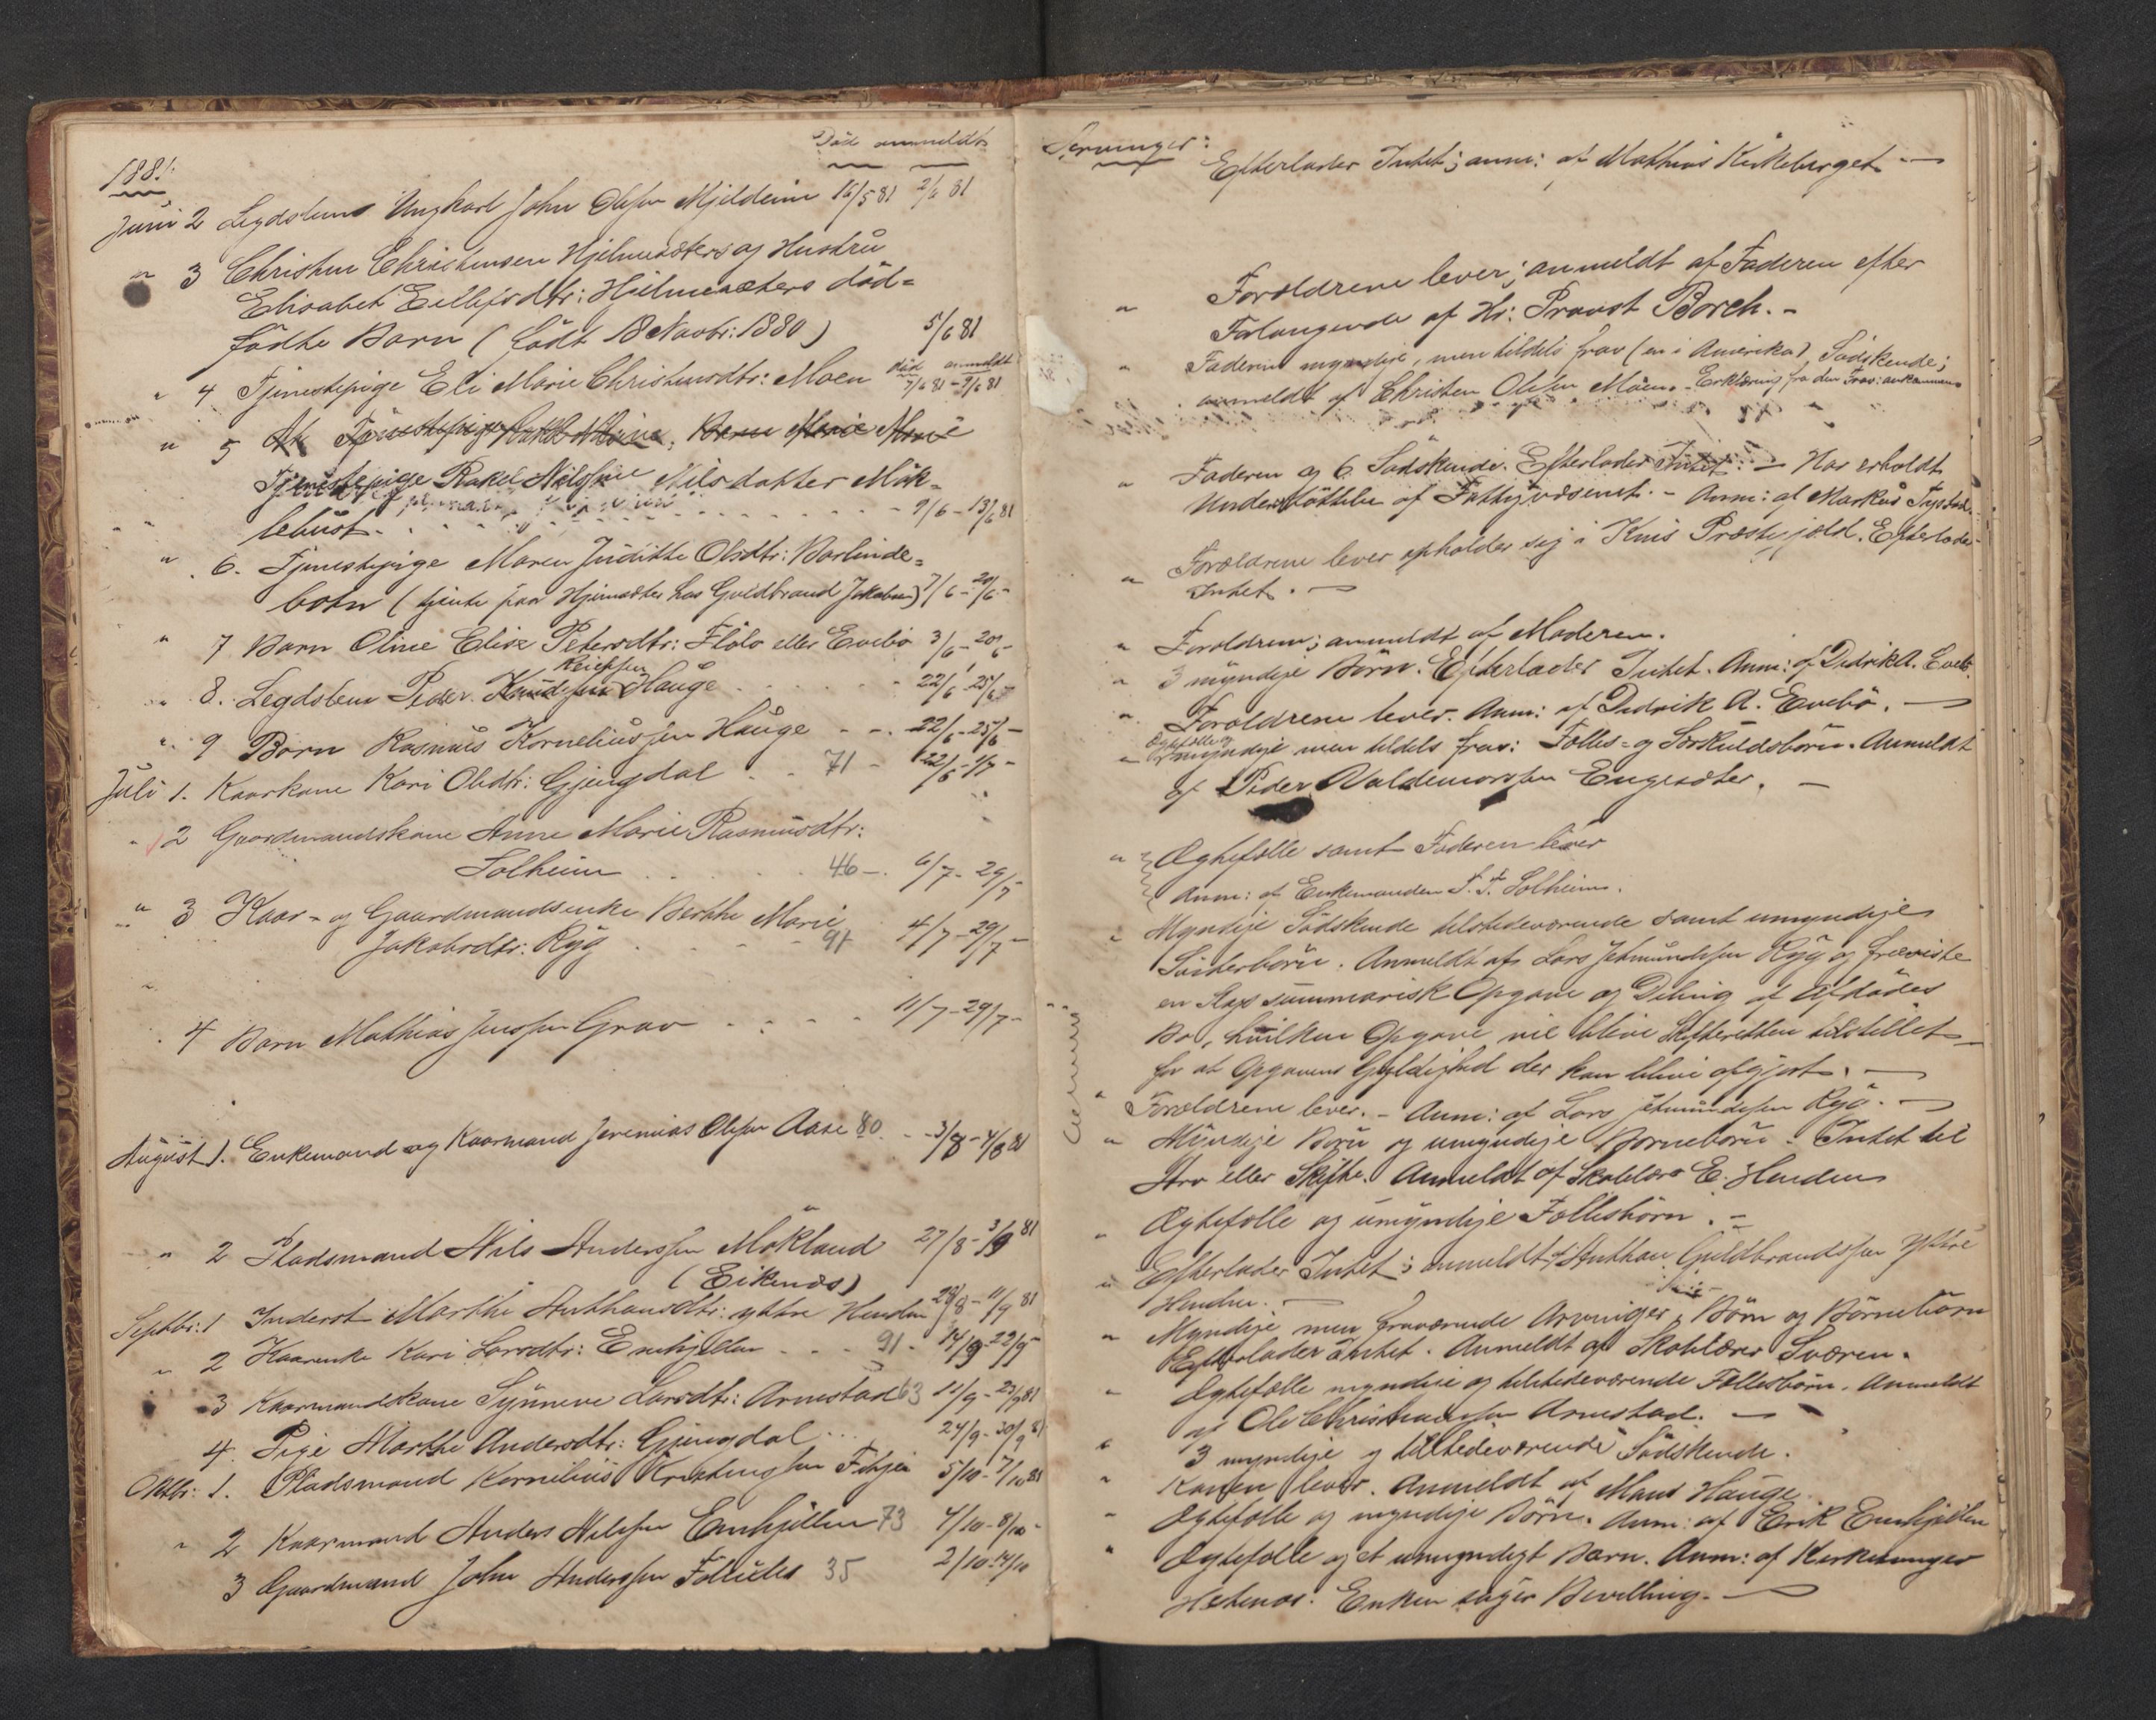 Død anmeldt
1881.
Juni 2 Legdslem Ungkarl John Olsen Mjeldeim 16/5 81 2/6 81
" 3 Christen Christensen Hjelmesæters og Hustru
Elisabet Eilifsdtr: Hjelmesæters død-
fødte Barn (født 18 Novbr: 1880) 5/6 81
død anmeldt
" 4 Tjenestepige Eli Marie Christensdtr: Moen 7/6 81 - 9/6 81
" 5
Tjenestepige Rakel Nilsine Nilsdatter Mök-
lebust. 9/6 - 13/6 81
" 6. Tjenestepige Maren Juditte Olsdtr: Barlinde-
botn (tjente paa Hjemsæter hos Guldbrand Jakobsen) 7/6 - 20/6 -
" 7 Barn Oline Elise Petersdtr: Flölo eller Evebø 3/6 - 20/6
" 8. Legdslem Peder Hauge 22/6 - 25/6 -
" 9 Barn Rasmus Korneliussen Hauge 22/6 - 25/6 -
Juli 1. Kaarkone Kari Olsdtr: Gjengdal 71 - 22/6 - 1/7 -
" 2 Gaardmandskone Anne Marie Rasmusdtr:
Solheim 46 - 6/7 - 29/7 -
" 3 Kaar- og Gaardmandsenke Berthe Marie
Jakobsdtr: Ryg 91 4/7 - 29/7 -
" 4 Barn Mathias Jenssen Grav 11/7 - 29/7 -
August 1. Enkemand og Kaarmand Jeremias Olsen Aase 80 - 3/8 - 4/8 81
" 2 Pladsmand Nils Anderssen Mökland 27/8 - 3/9 81
(Eikenæs)
Septbr: 1 Inderst Marthe Anthonsdtr: yttre Henden 28/8 - 11/9 81
" 2 Kaarenke Kari Larsdtr: Emhjellen 91 - 14/9 - 22/9 -
3 Kaarmandskone Synneve Larsdtr: Arnestad 63 11/9 - 23/9 81
4. Pige Marthe Andersdtr: Gjengdal 24/9 - 30/9 81
Oktbr: 1. Pladsmand Kornelius Kristenssen 5/10 - 7/10 81
" 2 Kaarmand Anders Nilssen Emhjellen 73 4/10 - 8/10 -
3 Gaardmand John Anderssen 35 2/10 - 14/10
Arvinger:
Efterlader Intet; anm: af Mathias Kirkeborget
" Forældrene lever; anmeldt af Faderen efter
Forlangende af Hr: Provst Borch. -
" Faderen myndige, men tildels frav (en i Amerika) Södskende;
anmeldt af Christen Olsen Moen. - Erklæring fra den
" Faderen og 6 Södskende. Efterlader Intet. - Har erholdt
Understöttelse af Fattigvæsenet. - Anm: af Markus Tystad.
" Forældrene lever opholder sig i Kins Præstegjæld. Efterlader
Intet. -
" Forældrene; anmeldt af Moderen.
" 3 myndige Börn. Efterlader Intet. Anm: af Didrik A. Evebö.
" Forældrene lever. Anm: af Didrik A. Evebö. -
" Ægtefælle og
myndige men tildels frav: Fælles- og Særkuldsbörn. Anmeldt
af Peder Valdemarssen Engesæter. -
" Ægtefælle samt Faderen lever
Anm: af Enkemanden T. T. Solheim.
" Myndige Södskende tilstedeværende samt umyndige
Södskerbörn. Anmeldt af Lars Jetmundssen Ryg og fremviste
en Slags summarisk Opgave og Deling af Afdödes
Bo, hvilken Opgave vil blive Skifteretten tilstillet
for at Opgavens Gyldighed der kan blive afgjort. -
" Forældrene lever. - Anm: af Lars Jetmundssen Ryg. -
" Myndige Börn og umyndige Börneborn. Intet til
Arv eller Skifte. Anmeldt af Skolelærer E. Henden
" Ægtefælle og umyndige Fællesbörn. -
" Efterlader Intet; anmeldt af Anthon Guldbrandssen Yttre
Henden. -
" Myndige men fraværende Arvinger, Börn og Börnebörn
Efterlader Intet. Anmeldt af Skolelærer Sværen.
" Ægtefælle myndige og tilstedeværende Fællesbörn. Anmeldt
af Ole Christianssen Arnestad. -
" 3 myndige og tilstedeværende Södskende.
" Konen lever. Anmeldt af Mons Hauge.
" Ægtefælle og myndige Börn. Anm: af Erik Emhjellen
" Ægtefælle og et umyndigt Barn. Anm: af Kirkesanger
Hetenæs. Enken søger Bevilling. -